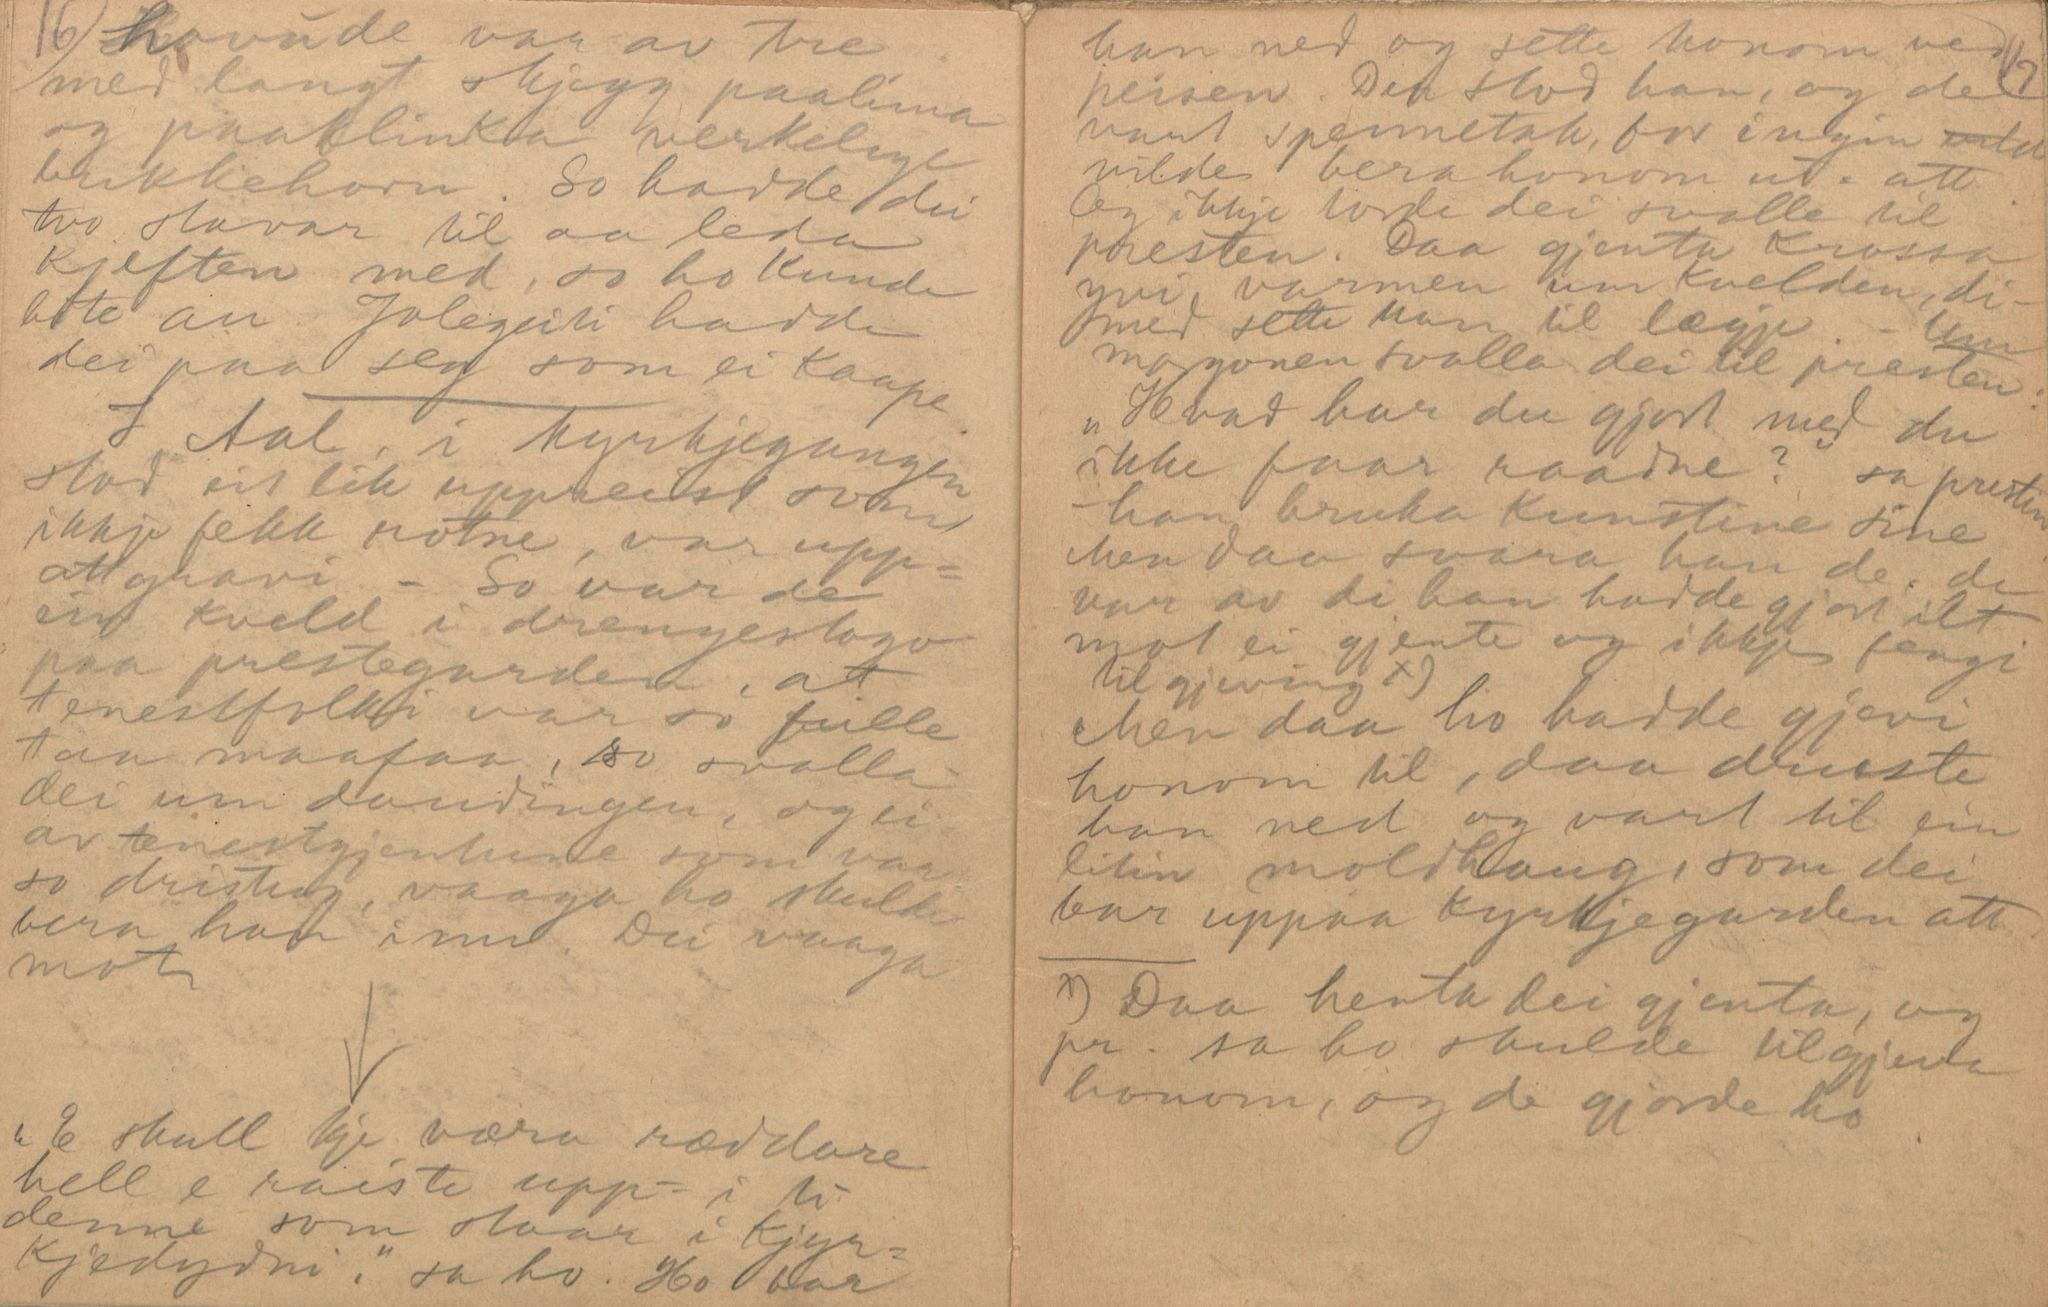 16) hovude var av tre
med langt skjegg paalima
og paaklinka verkelige
bukkehorn. So hadde dei
tvo stavar til aa leda
kjeften med, so ho kunde
bite an. Jolegeiti hadde
dei paa seg som ei kaape.
I Aal, i kyrkjegangen
stod eit lik uppreist som
ikkje fekk rotne, var upp-
att gravi - So var de
ein kveld i drengestogo
paa prestegarden, at
tenestfolki var so fulle
taa maafaa, so svalla
dei um daudingen, og ei
av tenestgjentune som var
so dristug, vaaga ho skulde
bera han inn. Dei vaaga
mot
"E skull kje væra ræddare
hell e raiste upp i ti
denne som staar i kjyr-
kjedydni." sa ho. Ho bar
17
han ned og sette honom ved
peisen. Der stod han, og de
vart spennetak, for ingin
vilde bera honom ut-att
Og ikkje torde dei svalle til
presten. Daa gjenta krossa
yvi varmen um kvelden, di-
med sette han til lægje - Um
morgonen svalla dei til presten:
"Hvad har du gjort med du
ikke faar raadne?" sa presten
- han bruka kunstine sine
Men daa svara han de, de
var av di han hadde gjort ilt
mot ei gjente og ikkje fengi
tilgjeving x)
Men daa ho hadde gjevi
honom til, daa druste
han ned og vart til ein
litin moldhaug, som dei
bar uppaa kyrkjegarden att.
x) Daa henta dei gjenta, og
pr. sa ho skulde tilgjeva
honom, og de gjorde ho